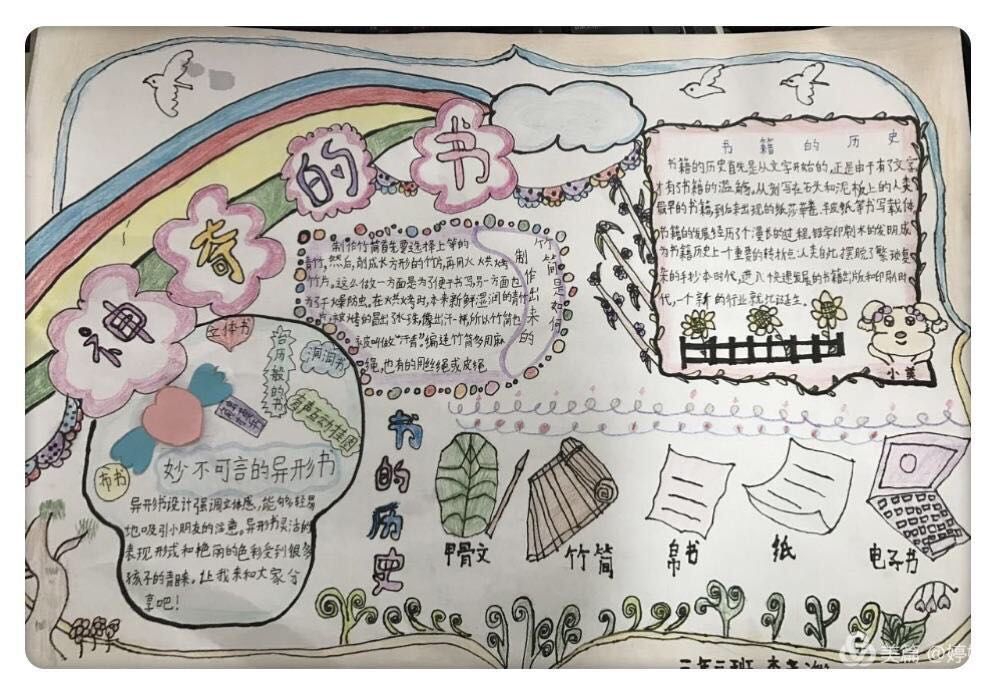 神奇的书
书籍的历史
书籍的历史首先是从文字开始的,正是由于有了文字
才有了书籍的滥觞。从刻写在石头和泥板上的人类
最早的书籍,到后来出现的纸莎草卷、羊皮纸等书写载体
书籍的发展经历了个漫长的过程,铅字印刷术的发明,成
为书籍历史上一个重要的转折点:人类自此摆脱了繁琐复
杂的手抄本时代,进入快速发展的书籍出版和印刷时
代,一个新的行业就此诞生。
小美
竹简是如何
制作出来的
制作竹简首先要选择上等的
青竹,然后,削成长方形的竹片,再用火烘烤
竹片。这么做一方面是为了便于书写,另一方面也
为了干燥防虫。在火烘烤时,本来新鲜湿润的青竹
片,被烤的冒出水珠,像出汗一样,所以竹简也
被叫做“汗青”。编连竹简多用麻
绳,也有的用丝绳或皮绳
立体书
台历般的书
洞洞书
有声互动挂图
布书
妙不可言的异形书
异形书设计强调立体感,能够轻易
地吸引小朋友的注意。异形书灵活的
表现形式和艳丽的色彩受到很多
孩子的青睐。让我来和大家分
享吧!
书的历史
甲骨文
竹简
帛书
纸
电子书
美篇 @婷